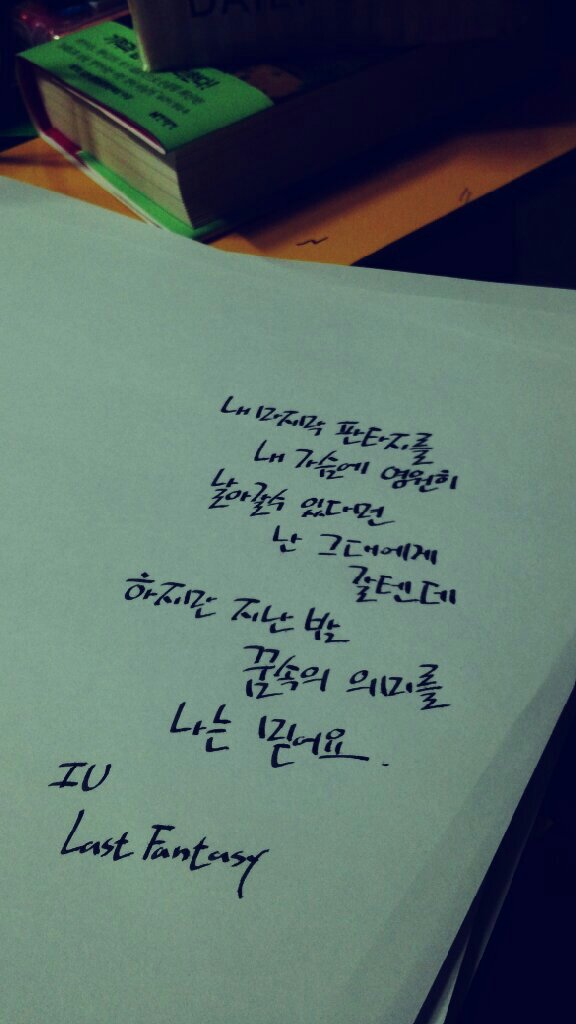 DAILY
내 마지막 판타지를
내 가슴에 영원히
날아갈수 있다면
난 그대에게
갈텐데
하지만 지난 밤
꿈속의 의미를
나는 믿어요.
IU
Last Fantasy